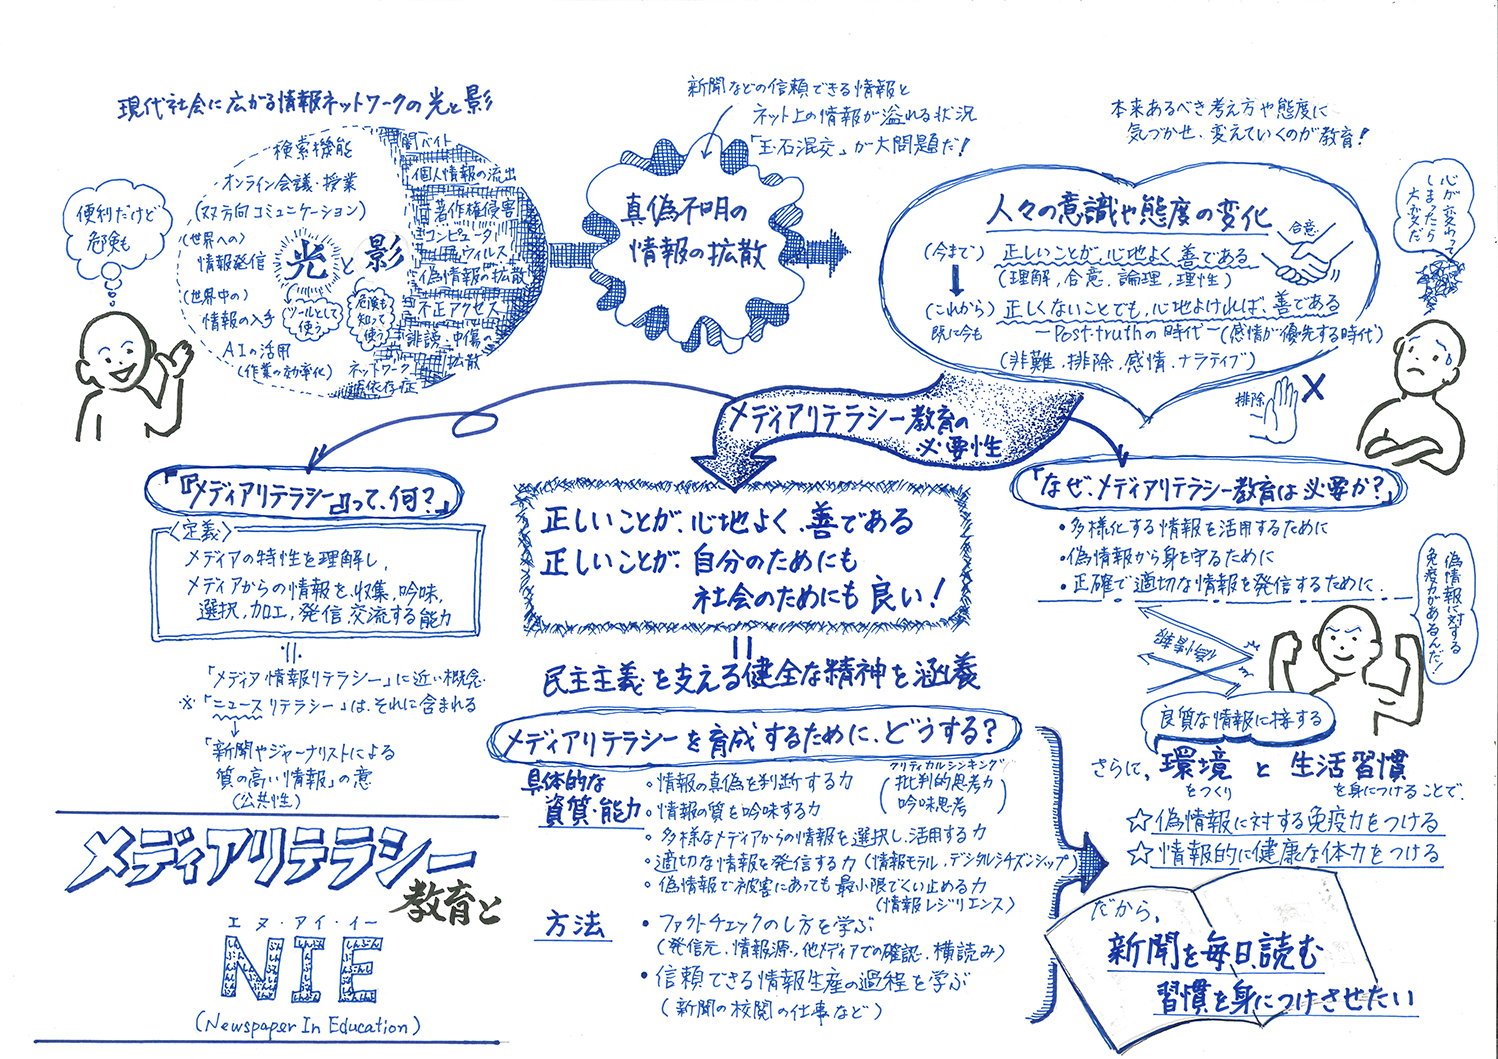 現代社会に広がる情報ネットワークの光と影
便利だけど
危険も
検索機能
オンライン会議・授業
(双方向コミュニケーション)
(世界への)
情報発信
(世界中の)
情報の入手
AIの活用
(作業の効率化)
光と影
ツールとして
使う
危険も
知って
使う
闇バイト
個人情報の流出
著作権侵害
コンピュータ
ウイルス
偽情報の拡散
不正アクセス
誹謗・中傷の
拡散
ネットワーク
依存症
新聞などの信頼できる情報と
ネット上の情報が溢れる状況
「玉石混交」が大問題だ!
真偽不明の
情報の拡散
本来あるべき考え方や態度に
気づかせ、変えていくのが教育!
人々の意識や態度の変化
(今まで) 正しいことが、心地よく、善である
(理解,合意,論理,理性)
合意
(これから) 正しくないことでも、心地よければ、善である
既に今も ーPost-truthの時代ー(感情が優先する時代)
(非難,排除,感情,ナラティブ)
排除
×
心が変わって
しまったら
大変だ
メディアリテラシー教育の
必要性
「『メディアリテラシー』って、何?」
〈定義〉
メディアの特性を理解し、
メディアからの情報を、収集,吟味,
選択,加工,発信,交流する能力
「メディア情報リテラシー」に近い概念
※「ニュースリテラシー」は、それに含まれる
「新聞やジャーナリストによる
質の高い情報」の意
(公共性)
メディアリテラシー
教育と
エヌ・アイ・イー
NIE
(Newspaper In Education)
正しいことが、心地よく、善である
正しいことが、自分のためにも
社会のためにも良い!
民主主義を支える健全な精神を涵養
メディアリテラシーを育成するために、どうする?
具体的な
資質・能力
・情報の真偽を判断する力
・情報の質を吟味する力
クリティカルシンキング
(批判的思考力
吟味思考)
・多様なメディアからの情報を選択し、活用する力
・適切な情報を発信する力(情報モラル,デジタルシチズンシップ)
・偽情報で被害にあっても最小限でくい止める力
(情報レジリエンス)
方法
・ファクトチェックのし方を学ぶ
(発信元、情報源、他メディアでの確認、横読み)
・信頼できる情報生産の過程を学ぶ
(新聞の校閲の仕事など)
「なぜ、メディアリテラシー教育は必要か?」
・多様化する情報を活用するために
・偽情報から身を守るために
・正確で適切な情報を発信するために
偽情報に対する
免疫力があるんだ!
良質な情報に接する
さらに、環境と生活習慣
をつくり を身につけることで、
☆偽情報に対する免疫力をつける
☆情報的に健康な体力をつける
だから、
新聞を毎日、読む
習慣を身につけさせたい